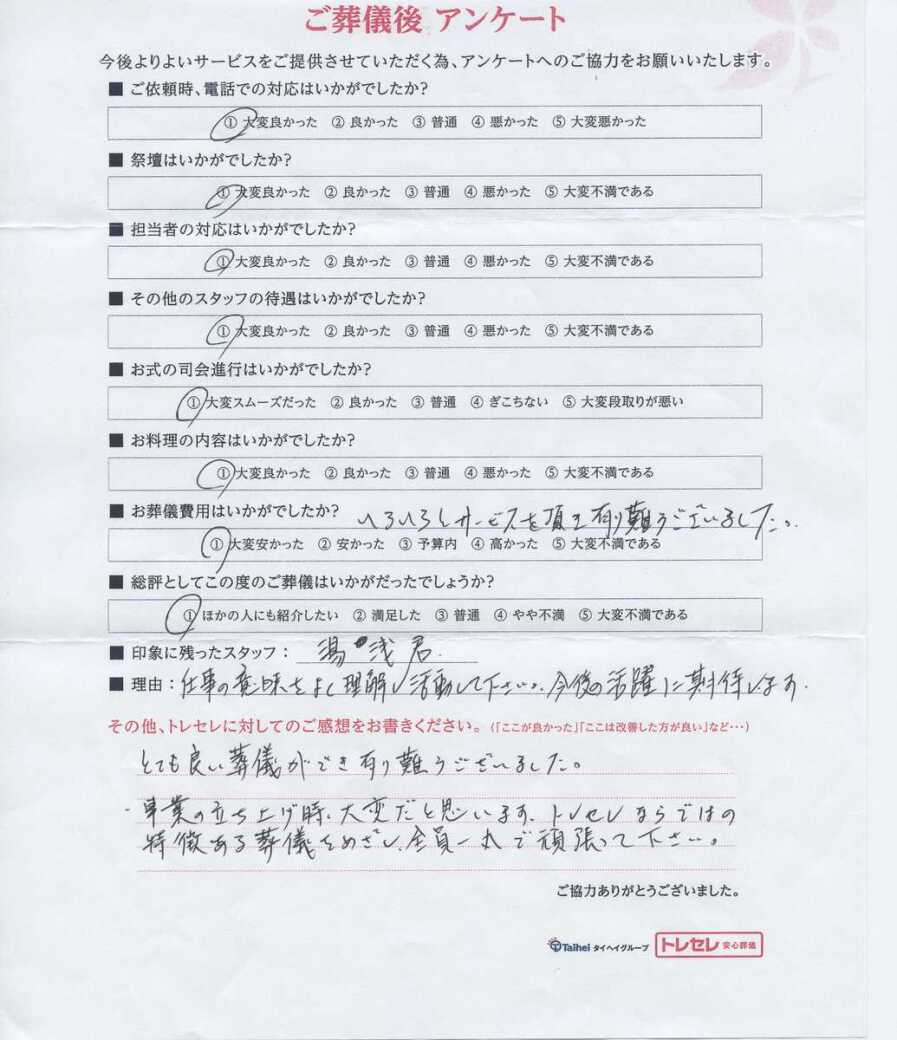 ご葬儀後 アンケート
今後よりよいサービスをご提供させていただく為、アンケートへのご協力をお願いいたします。
■ ご依頼時、電話での対応はいかがでしたか?
① 大変良かった ② 良かった ③ 普通 ④ 悪かった ⑤ 大変悪かった
■ 祭壇はいかがでしたか?
① 大変良かった ② 良かった ③ 普通 ④ 悪かった ⑤ 大変不満である
■ 担当者の対応はいかがでしたか?
① 大変良かった ② 良かった ③ 普通 ④ 悪かった ⑤ 大変不満である
■ その他のスタッフの待遇はいかがでしたか?
① 大変良かった ② 良かった ③ 普通 ④ 悪かった ⑤ 大変不満である
■ お式の司会進行はいかがでしたか?
① 大変スムーズだった ② 良かった ③ 普通 ④ ぎこちない ⑤ 大変段取りが悪い
■ お料理の内容はいかがでしたか?
① 大変良かった ② 良かった ③ 普通 ④ 悪かった ⑤ 大変不満である
■ お葬儀費用はいかがでしたか? いろいろとサービスを頂き有り難うございました。
① 大変安かった ② 安かった ③ 予算内 ④ 高かった ⑤ 大変不満である
■ 総評としてこの度のご葬儀はいかがだったでしょうか?
① ほかの人にも紹介したい ② 満足した ③ 普通 ④ やや不満 ⑤ 大変不満である
■ 印象に残ったスタッフ: 湯浅君.
■ 理由: 仕事の意味をよく理解し活動して下さい。今後の活躍に期待します.
その他、トレセレに対してのご感想をお書きください。(「ここが良かった」「ここは改善した方が良い」など・・・)
とても良い葬儀ができ有り難うございました。
・事業の立ち上げ時、大変だと思います、トレセレならではの
特徴ある葬儀をめざし、全員一丸で頑張って下さい。
ご協力ありがとうございました。
Taihei タイヘイグループ トレセレ 安心葬儀